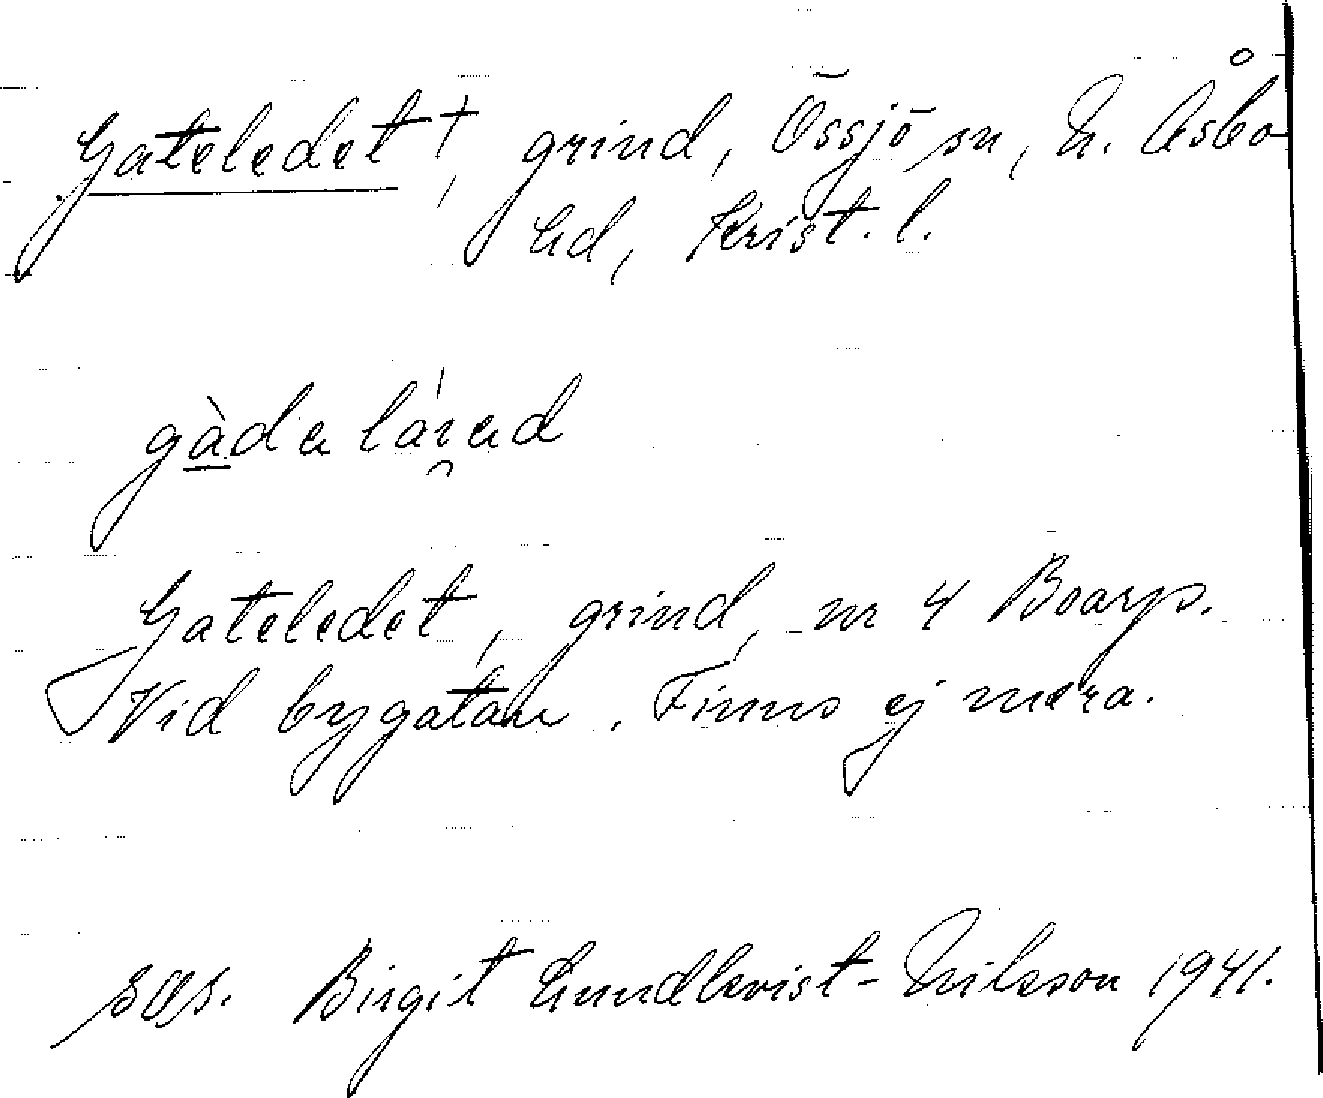 Gateledet †, grind, Össjö sn, N. Åsbo
hd, Krist. l.
gàda lárad
Gateledet, grind, nr 4 Boarp.
Vid bygatan. Finns ej mera.
Birgit Lundkvist-Nilsson 1941.